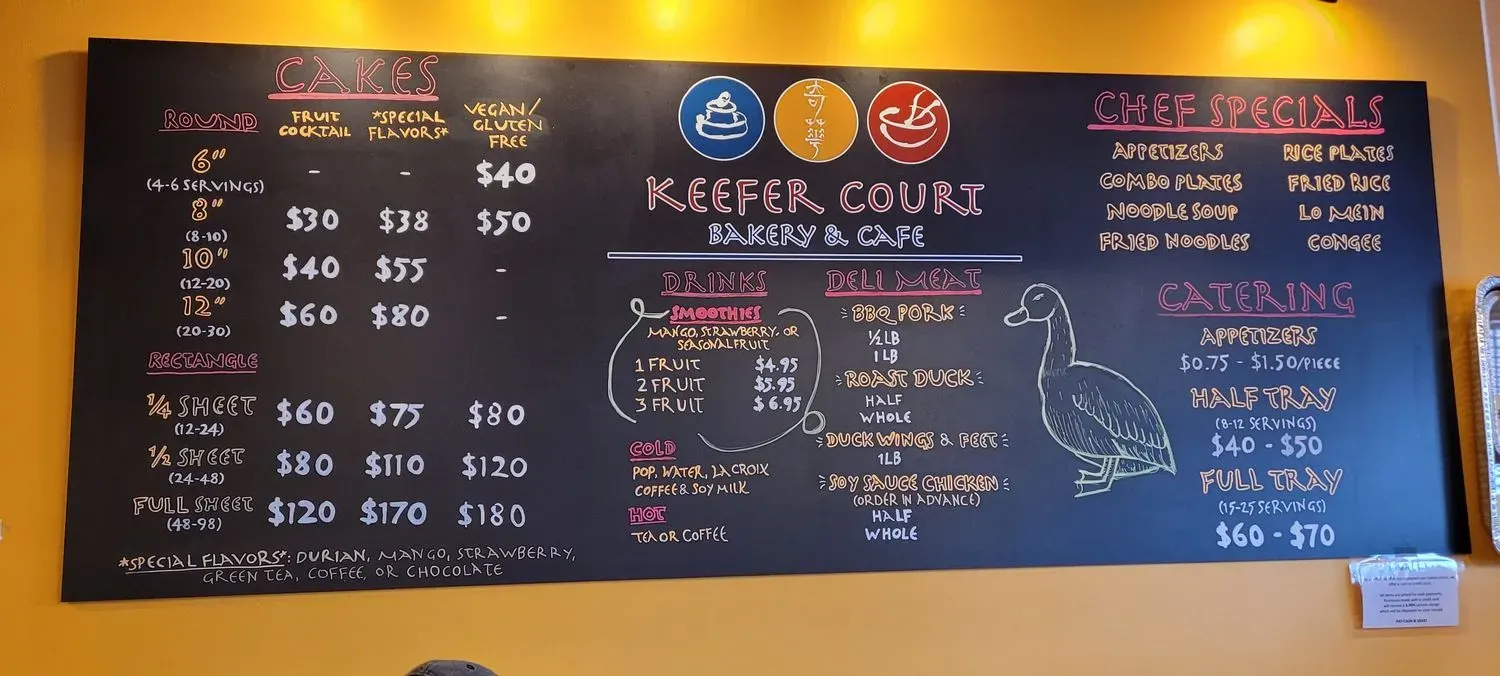 CAKES
ROUND FRUIT COCKTAIL *SPECIAL FLAVORS* VEGAN/ GLUTEN FREE
6" - - $40
(4-6 SERVINGS)
8" $30 $38 $50
(8-10)
10" $40 $55 -
(12-20)
12" $60 $80 -
(20-30)
RECTANGLE
1/4 SHEET $60 $75 $80
(12-24)
1/2 SHEET $80 $110 $120
(24-48)
FULL SHEET $120 $170 $180
(48-98)
*SPECIAL FLAVORS*: DURIAN, MANGO, STRAWBERRY,
GREEN TEA, COFFEE, OR CHOCOLATE
KEEFER COURT
BAKERY & CAFE
DRINKS
SMOOTHIES
MANGO, STRAWBERRY, OR
SEASONAL FRUIT
1 FRUIT $4.95
2 FRUIT $5.95
3 FRUIT $6.95
COLD
POP, WATER, LA CROIX
COFFEE & SOY MILK
HOT
TEA OR COFFEE
DELI MEAT
BBQ PORK
1/2 LB
1 LB
ROAST DUCK
HALF
WHOLE
DUCK WINGS & FEET
1LB
SOY SAUCE CHICKEN
(ORDER IN ADVANCE)
HALF
WHOLE
CHEF SPECIALS
APPETIZERS RICE PLATES
COMBO PLATES FRIED RICE
NOODLE SOUP LO MEIN
FRIED NOODLES CONGEE
CATERING
APPETIZERS
$0.75 - $1.50/PIECE
HALF TRAY
(8-12 SERVINGS)
$40 - $50
FULL TRAY
(15-25 SERVINGS)
$60 - $70